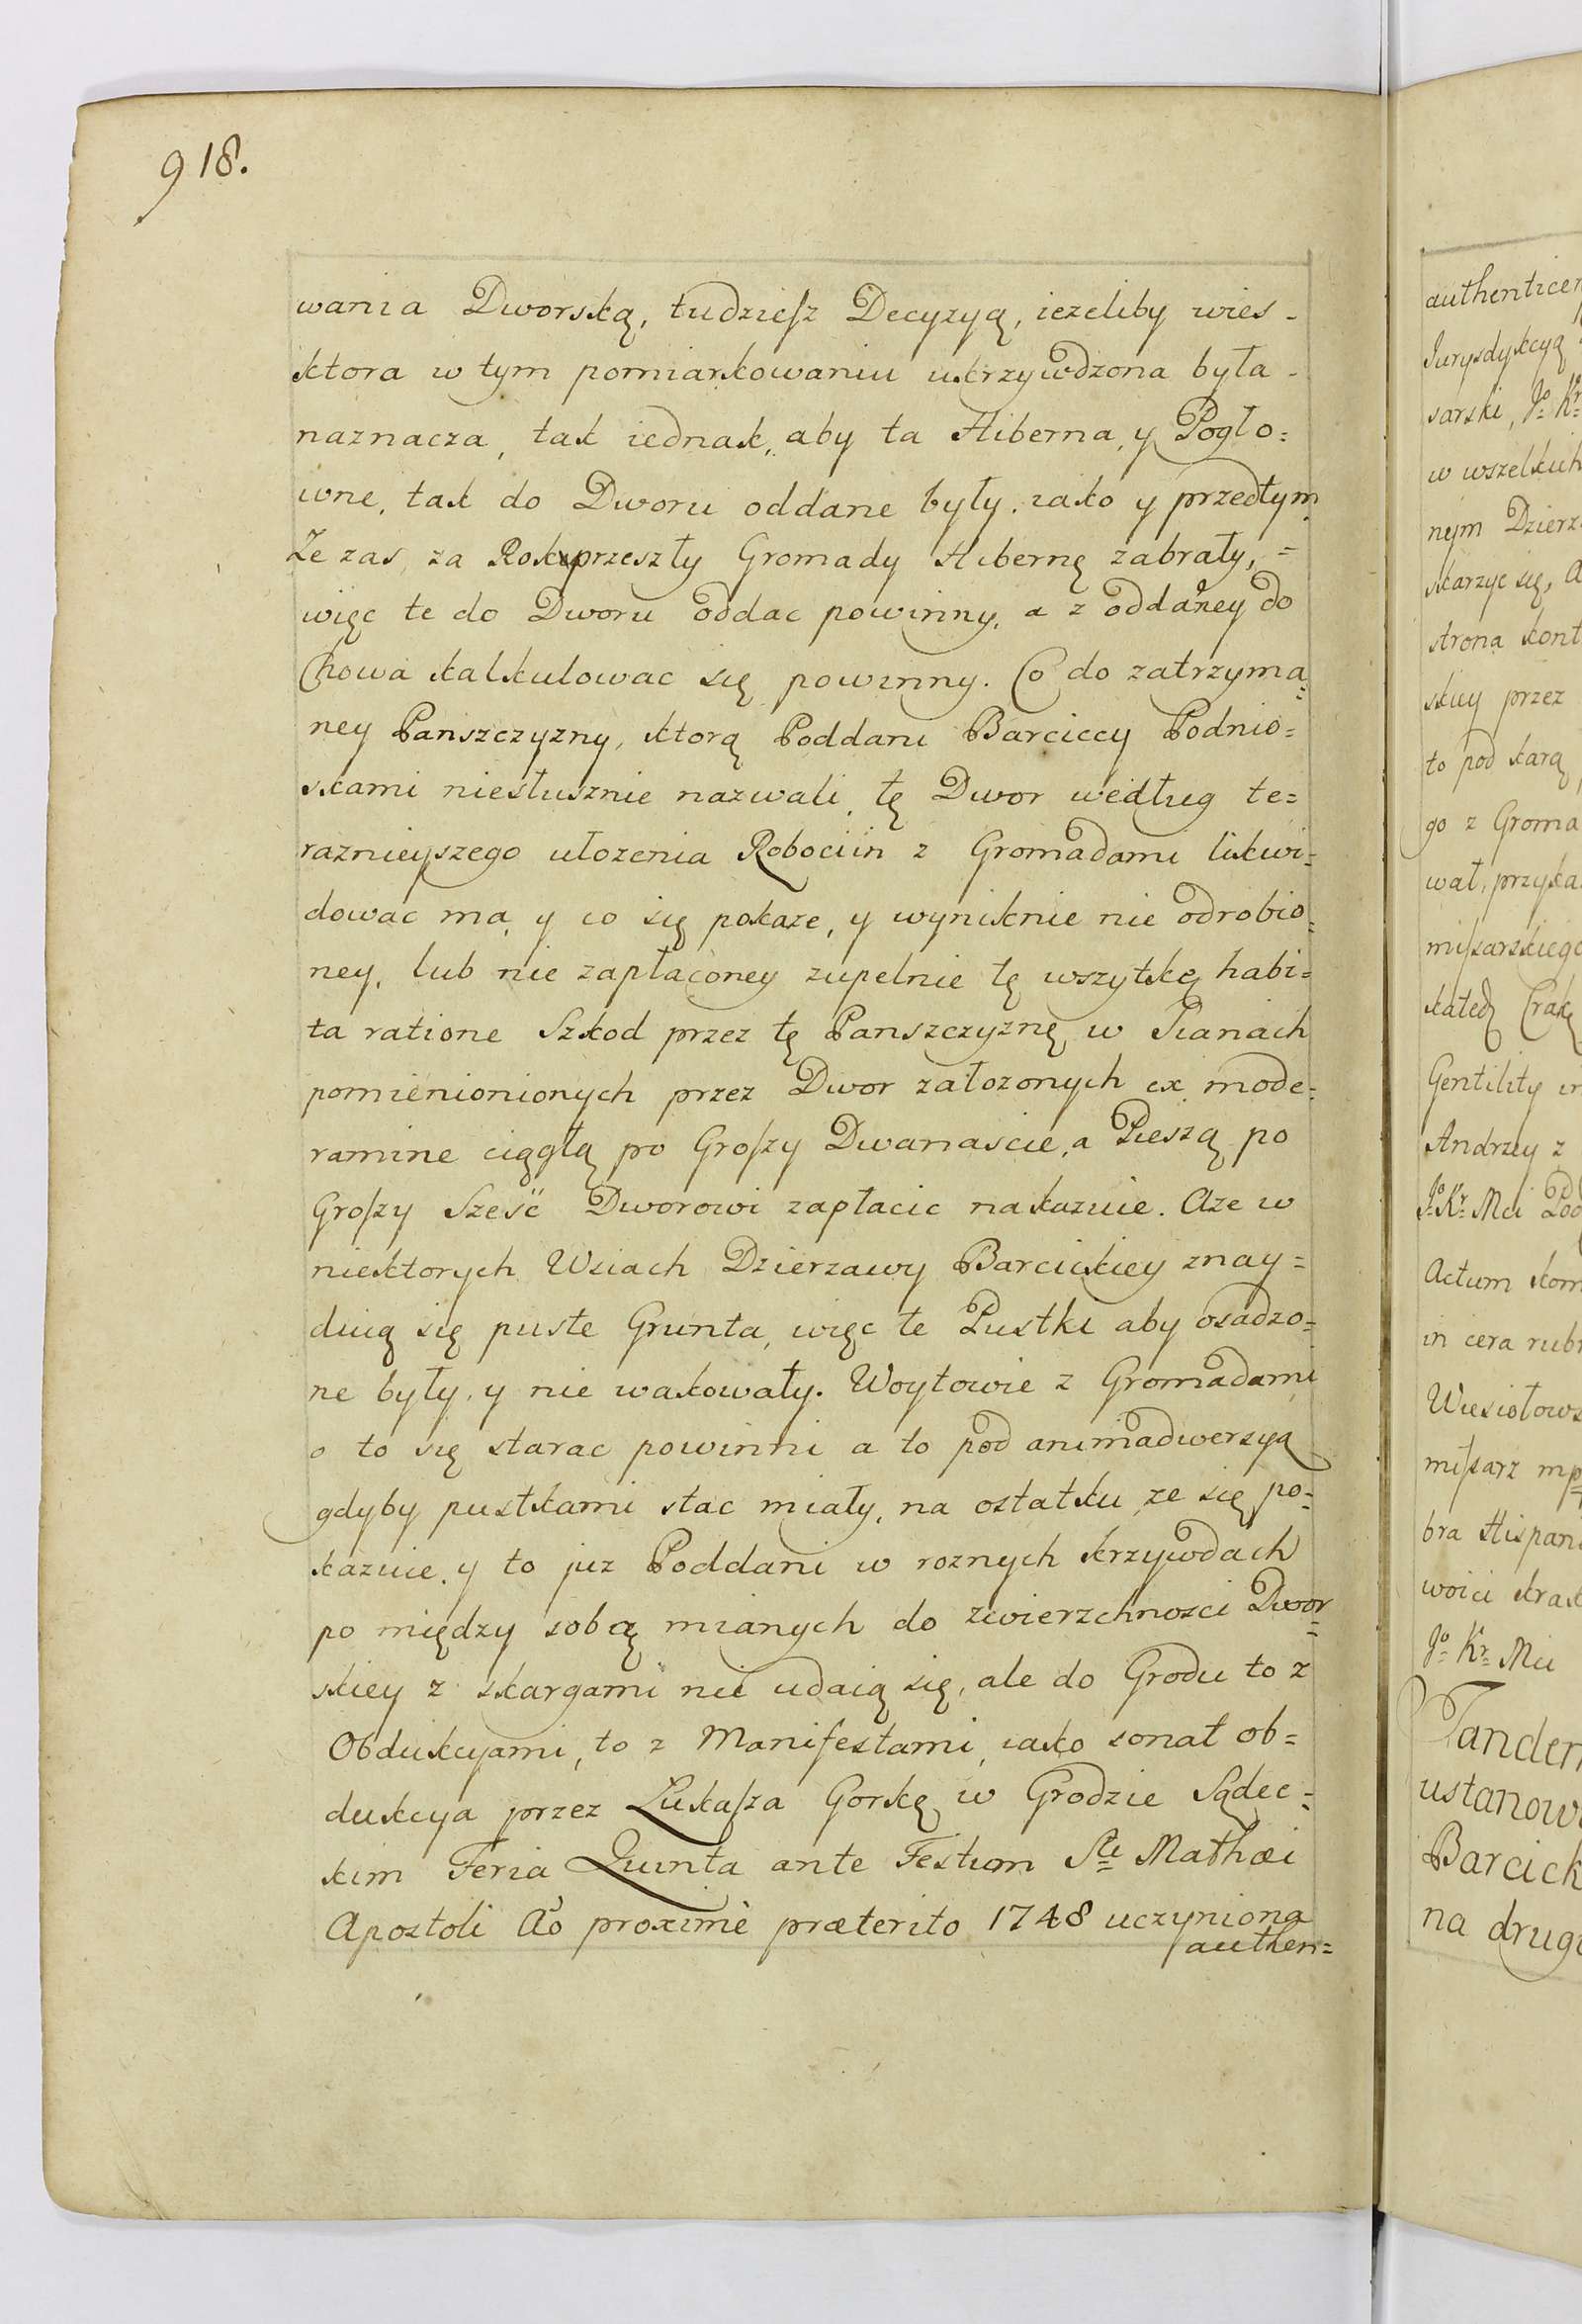 918.
wania Dworską, tudziesz Decyzyą, iezeliby wies -
ktora w tym pomiarkowaniu ukrzywdzona była -
naznacza, tak iednak, aby ta Hiberna, y Pogło=
wne, tak do Dworu oddane były, iako y przedtym
Ze zas, za Rok przeszły Gromady Hibernę zabrały, =
więc te do Dworu oddac powinny, a z oddaney do
Chowa kalkulowac się powinny. Co do zatrzyma=
ney Panszczyzny, ktorą Poddani Barciccy Podnio=
skami niesłusznie nazwali, tę Dwor według te=
raznieyszego ułozenia Robociin z Gromadami likwi=
dowac ma, y co się pokaze, y wyniknie nie odrobio=
ney, lub nie zapłaconey zupelnie tę wszytkę habi=
ta ratione Szkod przez tę Panszczyznę w Sianach
pomienionionych przez Dwor załozonych ex mode=
ramine ciągłą po Groszy Dwanascie, a Pieszą po
Groszy Sześć Dworowi zapłacic nakazuie. Aze w
niektorych Wsiach Dzierzawy Barcickiey znay=
duią się puste Grunta, więc te Pustki aby osadzo=
ne były, y nie wakowały. Woytowie z Gromadami
o to się starac powinni a to pod animadwersyą
gdyby pustkami stac miały, na ostatku ze się po=
kazuie, y to juz Poddani w roznych krzywdach
po między sobą mianych do zwierzchnosci Dwor=
skiey z skargami nie udaią się, ale do Grodu to z
Obdukcyami, to z Manifestami, iako sonat ob=
dukcya przez Łukasza Gorkę w Grodzie Sądec=
kim Feria Quinta ante Festum Sti Mathæi
Apostoli Ao proximè præterito 1748 uczyniona
authen=
authenticen
Jurysdykcyą
sarski, Jo Kr
w wszelkich
nym Dzierz
skarzyc się, a
strona kont
skiey przez
to pod karą
go z Groma
wał, przyka
missarskiego
kated Crak
Gentility in
Andrzey z
Jo Kr Mci Pod
Actum kom
in cera rubr
Wiesiołows
missarz mp
bra Hispan
woici krak
Jo Kr Mci
Tandem
ustanow
Barcick
na drugi